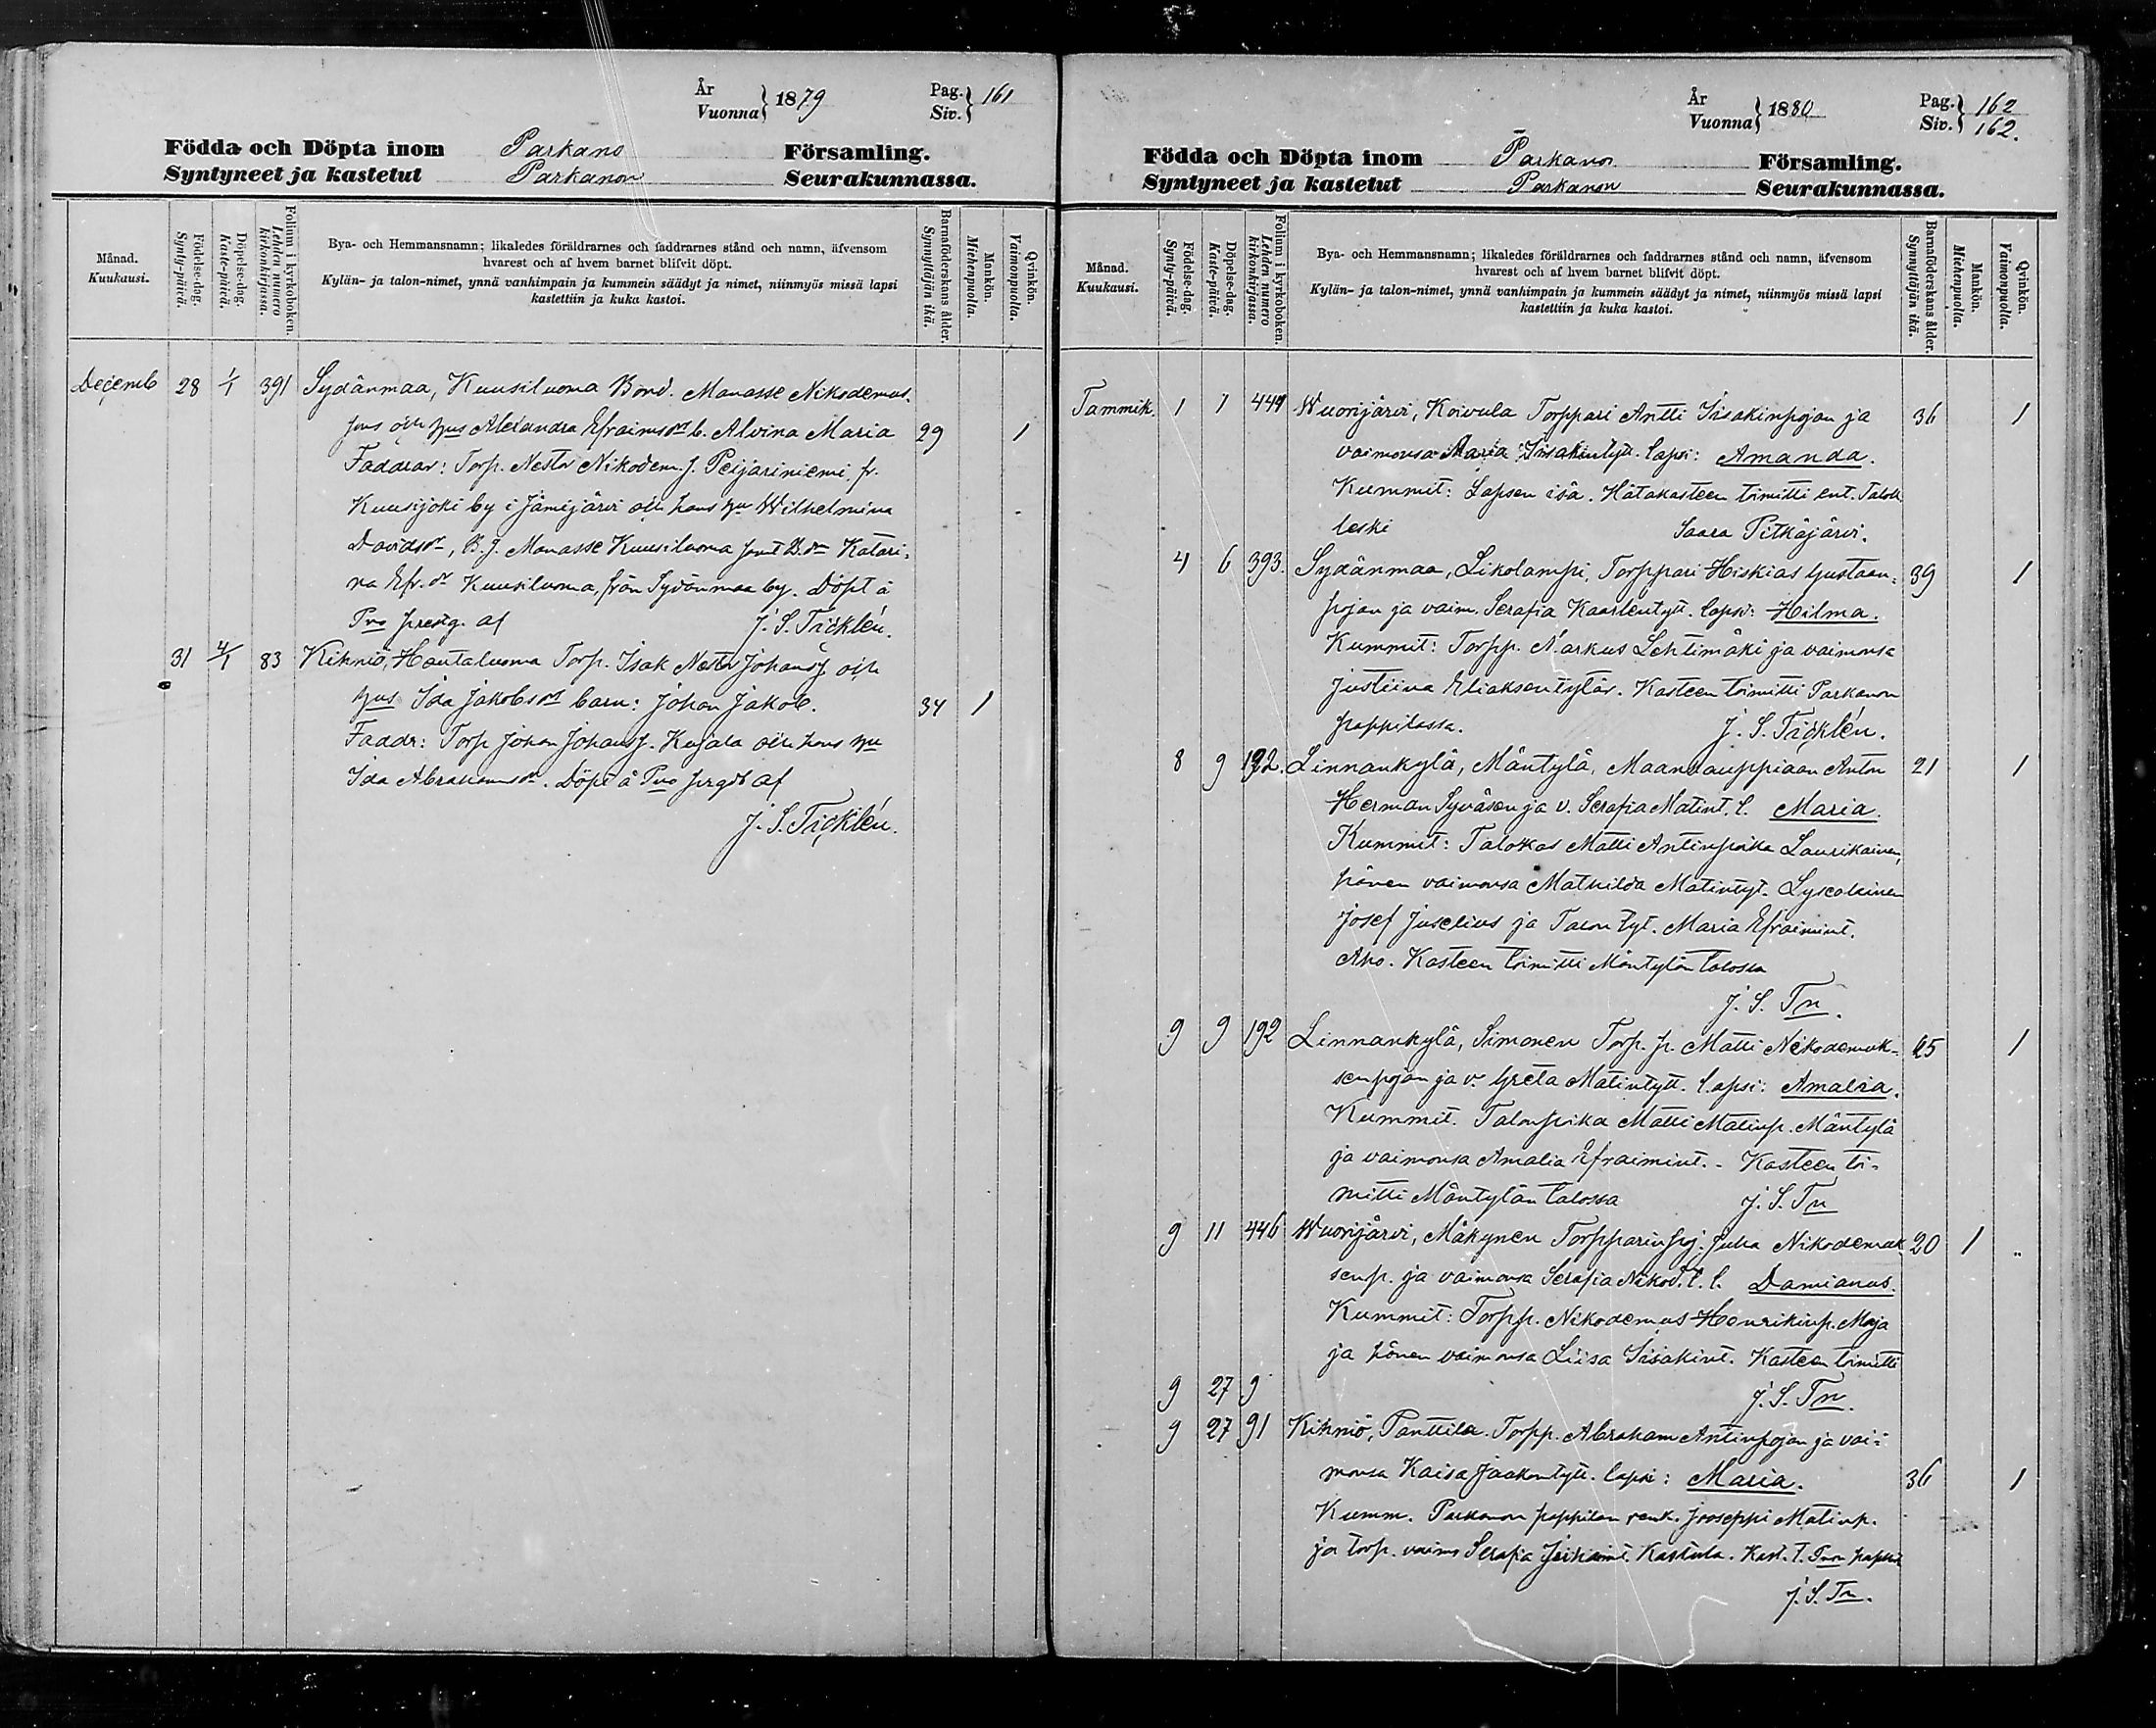 År
Vuonna } 1879
Pag.
Siv. } 161
Födda och Döpta inom Parkano Församling.
Syntyneet ja kastetut Parkanon Seurakunnassa.
Månad.
Kuukausi.
Födelse-dag.
Synty-päivä.
Döpelse-dag.
Kaste-päivä.
Folium i kyrkoboken.
Lehden numero kirkonkirjassa.
Bya- och Hemmansnamn; likaledes föräldrarnes och faddrarnes stånd och namn, äfvensom
hvarest och af hvem barnet blifvit döpt.
Kylän- ja talon-nimet, ynnä vanhimpain ja kummein säädyt ja nimet, niinmyös missä lapsi
kastettiin ja kuka kastoi.
Barnaföderskans ålder.
Synnyttäjän ikä.
Mankön.
Miehenpuolia.
Qvinkön.
Vaimonpuolia.
Decemb 28 1/1 391 Sydänmaa, Kuusiluoma Bond. Manasse Nikodemus-
sons och hus Alexandra Efraimsdr b. Alvina Maria 29 1
Faddrar: Torp. Nestor Nikodem. s. Peijariniemi fr.
Kuusijoki by i Jämijärvi och hans hu Wilhelmina
Davidsdr, B.s. Manasse Kuusiluoma samt B.dr Katari-
na Efr.dr Kuusiluoma, från Sydänmaa by. Döpt å
Pno prestg. af J. S. Ticklén.
31 4/1 83 Kihniö, Hautaluoma Torp. Isak Nestor Johanss. och
hus Ida Jakobsdr barn: Johan Jakob. 34 1
Faddr: Torp Johan Johanss. Kujala och hans hu
Ida Abrahamsdr. Döpt å Pno prgd af
J. S. Ticklén.
År
Vuonna } 1880
Pag.
Siv. } 162
162.
Födda och Döpta inom Parkano Församling.
Syntyneet ja kastetut Parkanon Seurakunnassa.
Månad.
Kuukausi.
Födelse-dag.
Synty-päivä.
Döpelse-dag.
Kaste-päivä.
Folium i kyrkoboken.
Lehden numero kirkonkirjassa.
Bya- och Hemmansnamn; likaledes föräldrarnes och faddrarnes stånd och namn, äfvensom
hvarest och af hvem barnet blifvit döpt.
Kylän- ja talon-nimet, ynnä vanhimpain ja kummein säädyt ja nimet, niinmyös missä lapsi
kastettiin ja kuka kastoi.
Barnaföderskans ålder.
Synnyttäjän ikä.
Mankön.
Miehenpuolia.
Qvinkön.
Vaimonpuolia.
Tammik. 1 1 Wuorijärvi, Koivula Torppari Antti Iisakinpojan ja 36 1
vaimonsa Maria Iisakintytt. lapsi: Amanda.
Kummit: Lapsen isä. Hätäkasteen toimitti ent. Talok
leski Saara Pitkäjärvi.
4 6 393. Sydänmaa, Likolampi, Torppari Hiskias Gustaan- 39 1
pojan ja vaim. Serafia Kaarlentytt. lapsi: Hilma.
Kummit: Torpp. Markus Lehtimäki ja vaimonsa
Justiina Eliaksentytär. Kasteen toimitti Parkanon
pappilassa. J. S. Ticklén.
8 9 192. Linnankylä, Mäntylä, Maankauppiaan Anton 21 1
Herman Syväsen ja v. Serafia Matint. l. Maria.
Kummit: Talokas Matti Antinpoika Laurikainen,
hänen vaimonsa Mathilda Matintyt. Lyseolainen
Josef Juselius ja Talon tyt. Maria Efraimint.
Aho. Kasteen toimitti Mäntylän talossa
J. S. Tn.
9 9 192 Linnankylä, Simonen Torp. p. Matti Nikodemuk- 25 1
senpojan ja v. Greta Matintytt. lapsi: Amalia.
Kummit. Talonpoika Matti Matinp. Mäntylä
ja vaimonsa Amalia Efraimint. - Kasteen toi-
mitti Mäntylän talossa J. S. Tn
9 11 446 Wuorijärvi, Mäkynen Torpparinpoj. Juha Nikodemuk 20 1 "
senp. ja vaimonsa Serafia Nikod. t. l. Damianus.
Kummit: Torpp. Nikodemus Henrikinp. Maja
ja hänen vaimonsa Liisa Iisakint. Kasteen toimitti
9 27 9 J. S. Tn.
9 27 91 Kihniö, Panttila. Torpp. Abraham Antinpojan ja vai-
monsa Kaisa Jaakontytt. lapsi: Maria. 36 1
Kumm. Parkanon pappilan renk. Jooseppi Matinp.
ja torp. vaimo Serafia Kastula. Kast. t. Pnon
J. S. Tn.